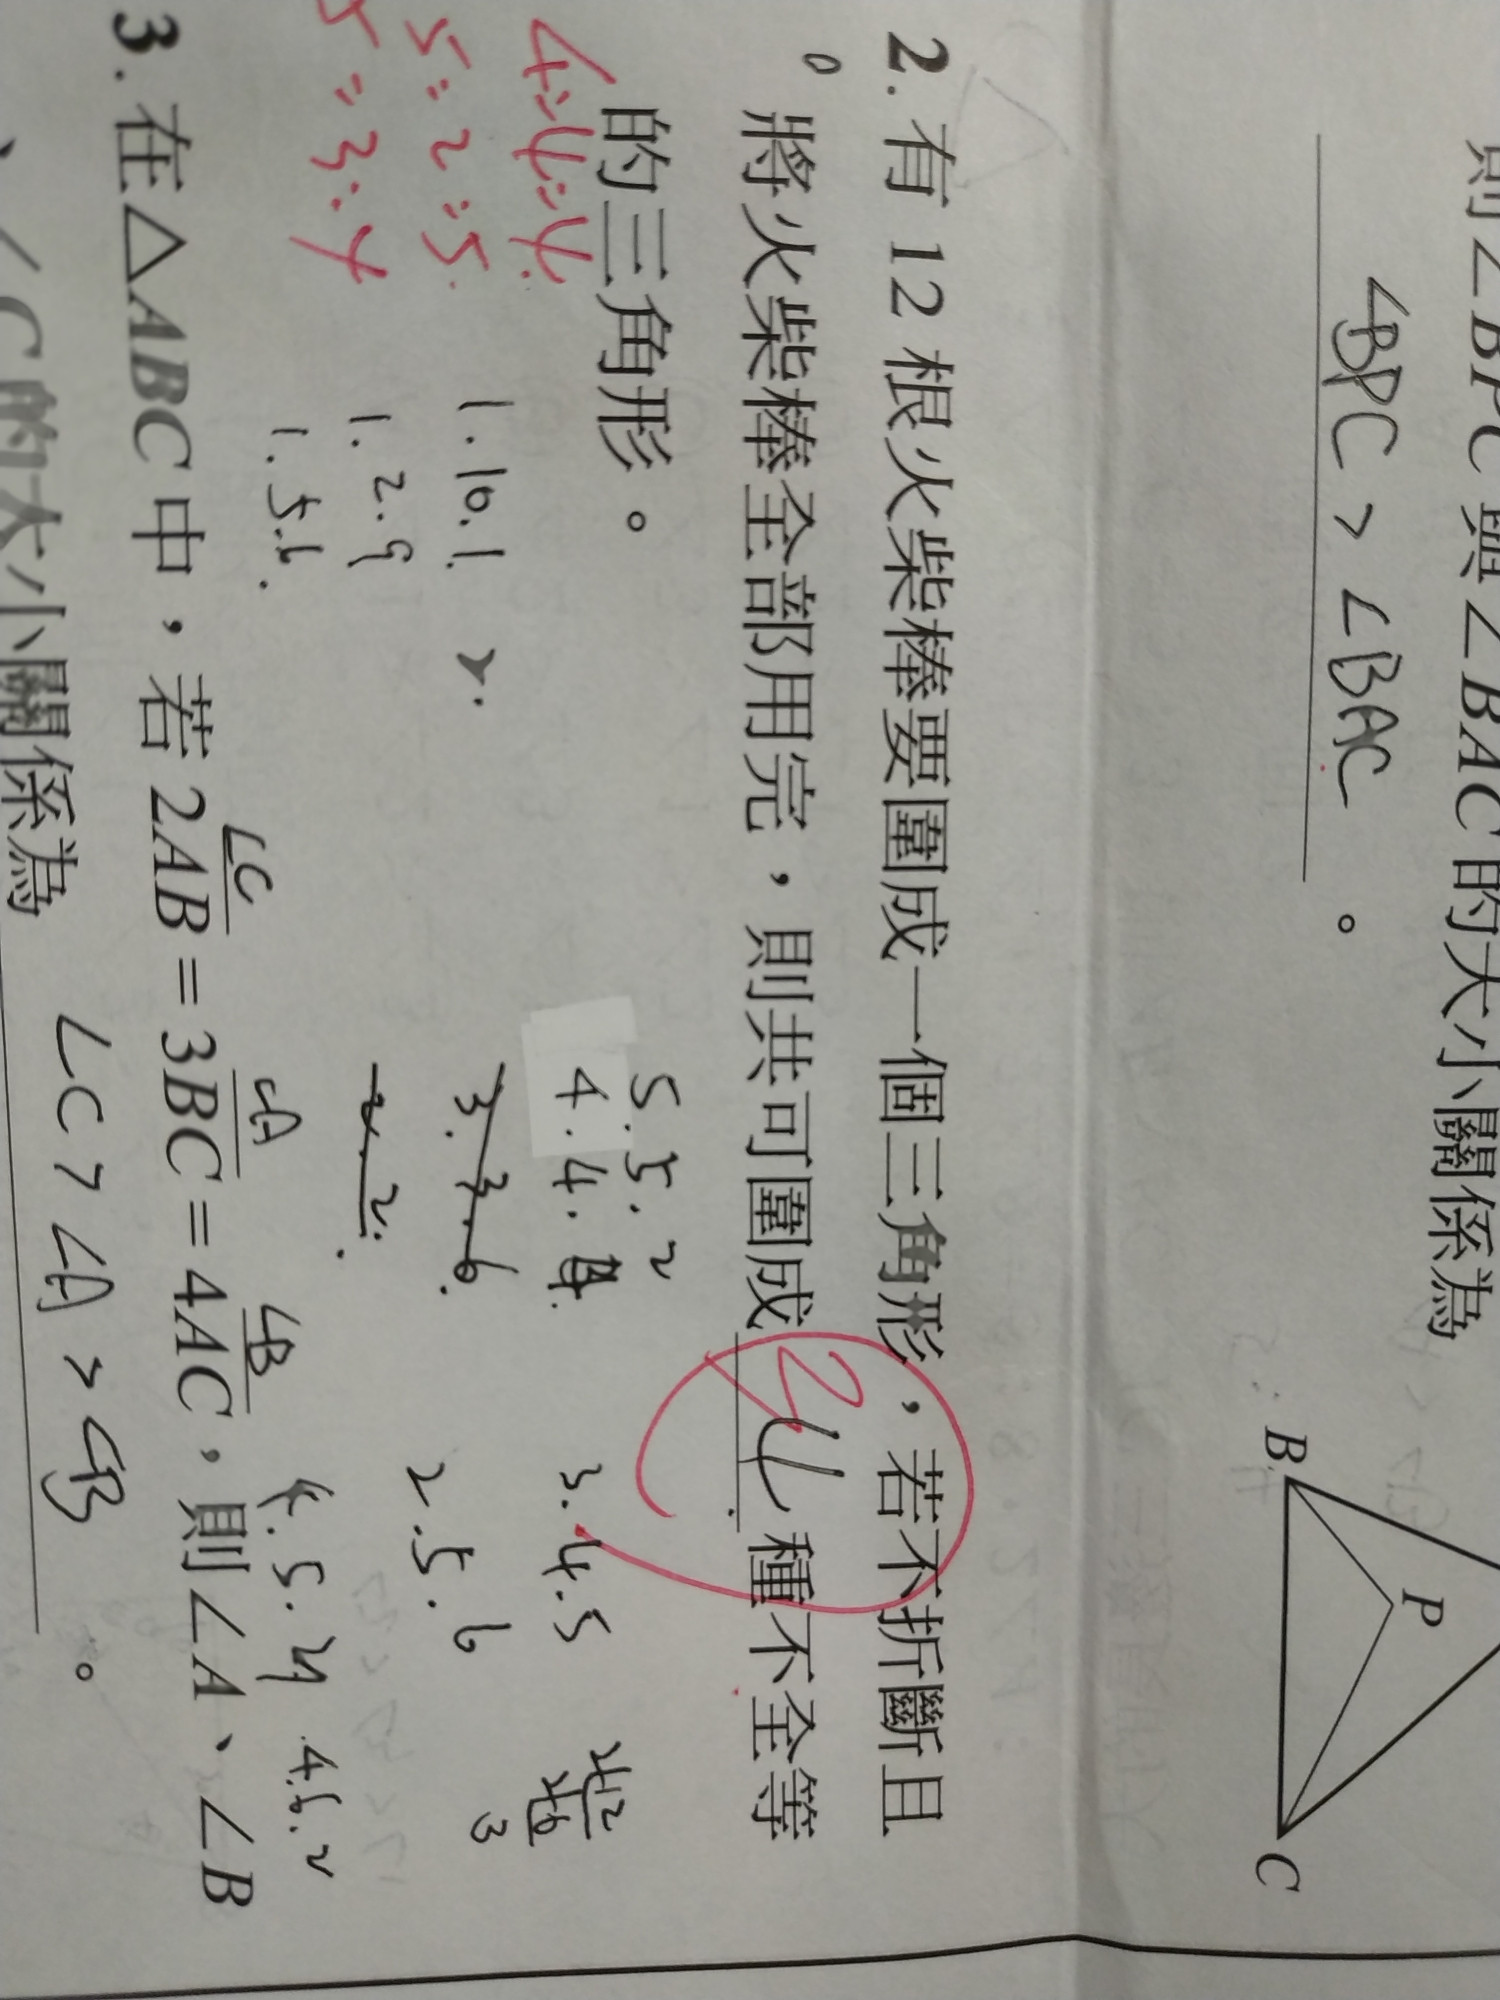 則∠BPC與∠BAC的大小關係為
∠BPC > ∠BAC 。
B
P
C
2. 有 12 根火柴棒要圍成一個三角形，若不折斷且
將火柴棒全部用完，則共可圍成 4 種不全等
的三角形。
5.5.2
4.4.4.
3.3.6.
2.2.
3.4.5
2.5.6
1.10.1
1.2.9
1.5.6.
4=4=4
5=2=5
5=3=4
4.6.2
∠C
∠A
∠B
3. 在△ABC中，若2AB=3BC=4AC，則∠A、∠B
、∠C的大小關係為 ∠C > ∠A > ∠B 。